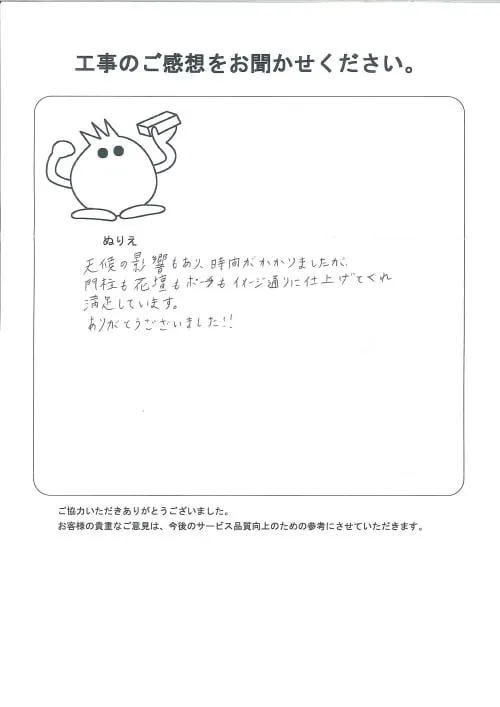 工事のご感想をお聞かせください。
ぬりえ
天候の影響もあり、時間がかかりましたが、
門柱も花壇もポーチもイメージ通りに仕上げてくれ
満足しています。
ありがとうございました!!
ご協力いただきありがとうございました。
お客様の貴重なご意見は、今後のサービス品質向上のための参考にさせていただきます。